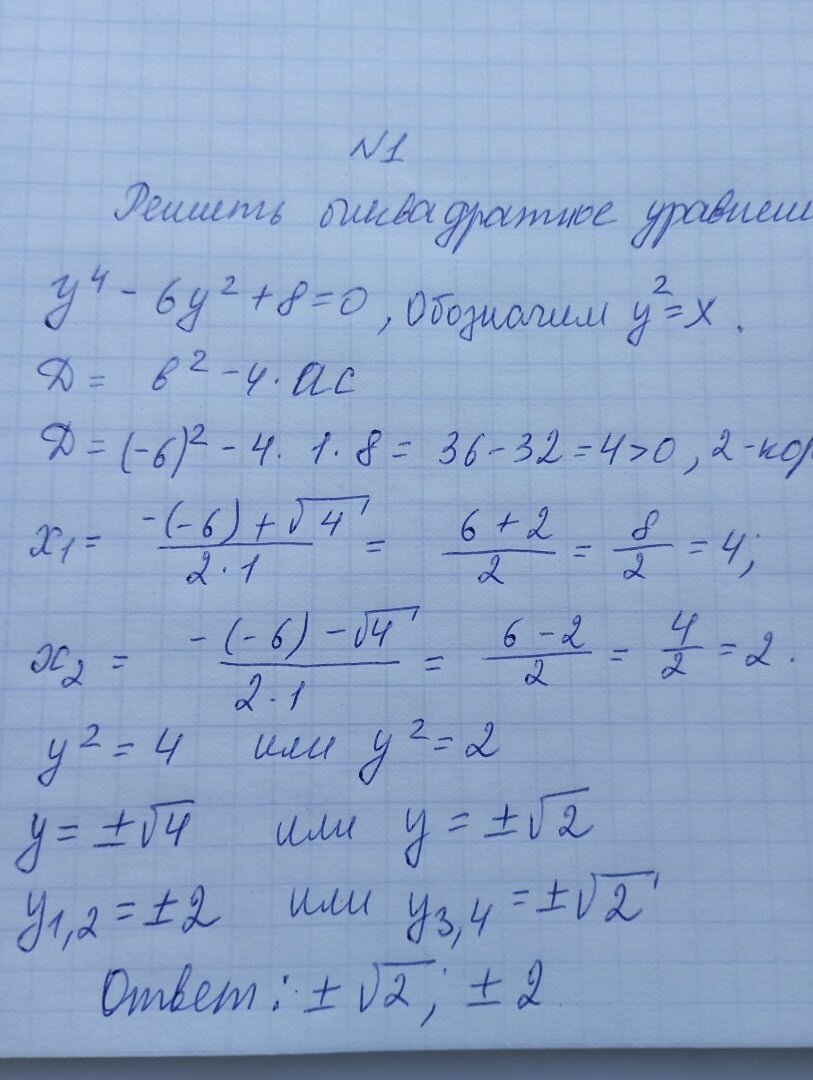 N1
Решить биквадратное уравнен
y⁴ - 6y² + 8 = 0 , Обозначим y² = x .
D = b² - 4 · ac
D = (-6)² - 4 · 1 · 8 = 36 - 32 = 4 > 0 , 2 - кор
x₁ = (-(-6) + √4) / (2 · 1) = (6 + 2) / 2 = 8/2 = 4;
x₂ = (-(-6) - √4) / (2 · 1) = (6 - 2) / 2 = 4/2 = 2 .
y² = 4 или y² = 2
y = ±√4 или y = ±√2
y₁,₂ = ±2 или y₃,₄ = ±√2
Ответ: ±√2; ±2